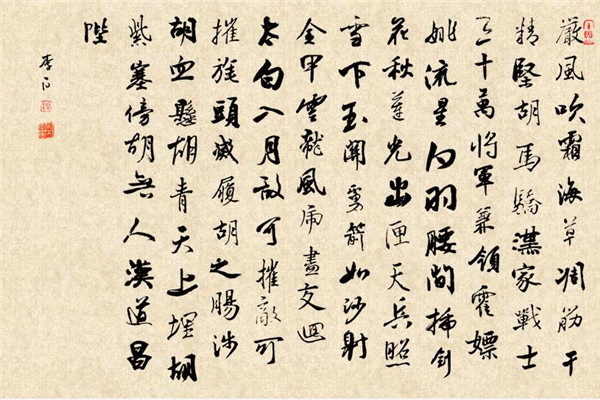 嚴風吹霜海草凋筋干
精堅胡馬驕漢家戰士
三十萬將軍兼領霍嫖
姚流星白羽腰間插劍
花秋蓮光出匣天兵照
雪下玉關虜箭如沙射
金甲雲龍風虎盡交迴
太白入月敵可摧敵可
摧旄頭滅履胡之腸涉
胡血懸胡青天上埋胡
紫塞傍胡無人漢道昌
陛
李白